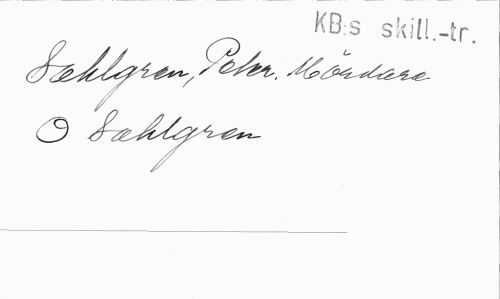 KB:s skill.-tr.
Sahlgren, Peter. Mördare
O Sahlgren